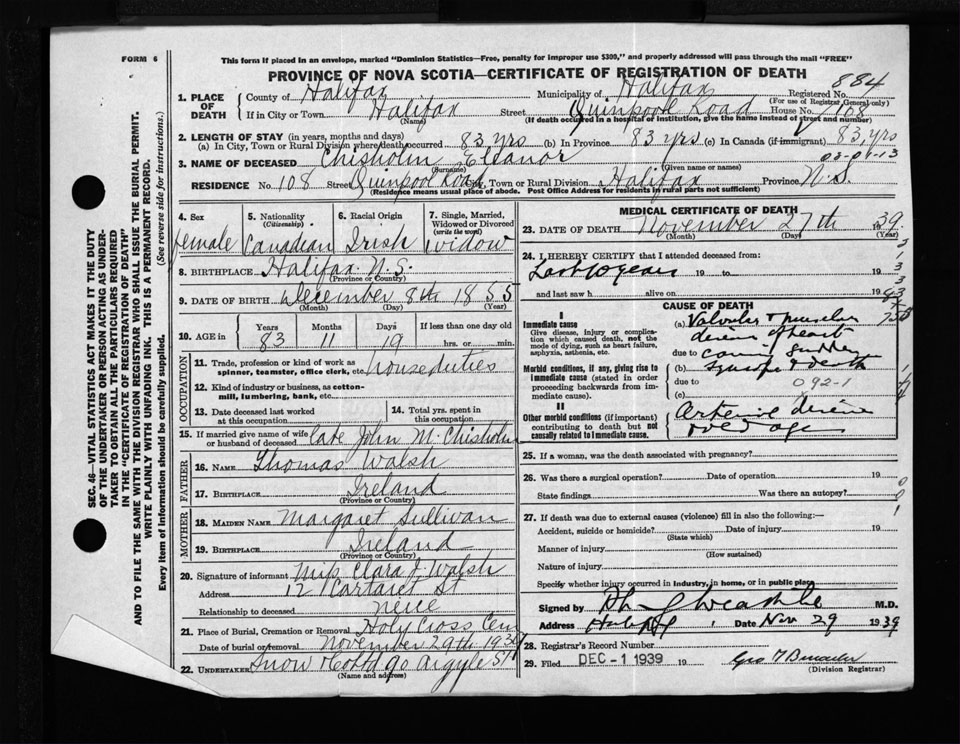 FORM 6
This form if placed in an envelope, marked "Dominion Statistics—Free, penalty for improper use $300," and properly addressed will pass through the mail "FREE"
PROVINCE OF NOVA SCOTIA—CERTIFICATE OF REGISTRATION OF DEATH
884
1. PLACE OF DEATH
County of Halifax Municipality of Halifax Registered No.
(For use of Registrar General only)
If in City or Town Halifax Street Quinpool Road House No. 108
(Name) (If death occurred in a hospital or institution, give the name instead of street and number)
2. LENGTH OF STAY (in years, months and days)
(a) In City, Town or Rural Division where death occurred 83 yrs (b) In Province 83 yrs (c) In Canada (if immigrant) 83 yrs
3. NAME OF DECEASED Chisholm Eleanor
(Surname) (Given name or names)
RESIDENCE No. 108 Street Quinpool Road City, Town or Rural Division Halifax Province N.S.
(Residence means usual place of abode. Post Office Address for residents in rural parts not sufficient)
4. Sex female
5. Nationality (Citizenship) Canadian
6. Racial Origin Irish
7. Single, Married, Widowed or Divorced (write the word) widow
8. BIRTHPLACE Halifax N.S.
(Province or Country)
9. DATE OF BIRTH December 8th 1855
(Month) (Day) (Year)
10. AGE in Years 83 Months 11 Days 19 If less than one day old hrs. or min.
OCCUPATION
11. Trade, profession or kind of work as spinner, teamster, office clerk, etc. houseduties
12. Kind of industry or business, as cotton-mill, lumbering, bank, etc.
13. Date deceased last worked at this occupation
14. Total yrs. spent in this occupation
15. If married give name of wife or husband of deceased Late John M. Chisholm
FATHER
16. NAME Thomas Walsh
17. BIRTHPLACE Ireland
(Province or Country)
MOTHER
18. MAIDEN NAME Margaret Sullivan
19. BIRTHPLACE Ireland
(Province or Country)
20. Signature of informant Miss Clara J. Walsh
Address 121 Cartaret St
Relationship to deceased neice
21. Place of Burial, Cremation or Removal Holy Cross Cem
Date of burial or removal November 29th 1939
22. UNDERTAKER Snow & Co Ltd 90 Argyle St
(Name and address)
MEDICAL CERTIFICATE OF DEATH
23. DATE OF DEATH November 27th 1939
(Month) (Day) (Year)
24. I HEREBY CERTIFY that I attended deceased from:
Last 10 years 19 to 19
and last saw h alive on 19
CAUSE OF DEATH
I
Immediate cause
Give disease, injury or complication which caused death, not the mode of dying, such as heart failure, asphyxia, asthenia, etc.
(a) Valvular & muscular
disease of heart
due to
(b)
Morbid conditions, if any, giving rise to immediate cause (stated in order proceeding backwards from immediate cause).
due to 092-1
(c)
II
Other morbid conditions (if important) contributing to death but not causally related to immediate cause.
25. If a woman, was the death associated with pregnancy?
26. Was there a surgical operation? Date of operation 19
State findings Was there an autopsy?
27. If death was due to external causes (violence) fill in also the following:—
Accident, suicide or homicide? Date of injury 19
(State which)
Manner of injury
(How sustained)
Nature of injury
Specify whether injury occurred in industry, in home, or in public place
Signed by M.D.
Address Date Nov 29 1939
28. Registrar's Record Number
29. Filed DEC - 1 1939 19
(Division Registrar)
SEC. 46—VITAL STATISTICS ACT MAKES IT THE DUTY
OF THE UNDERTAKER OR PERSON ACTING AS UNDER-
TAKER TO OBTAIN ALL THE PARTICULARS REQUIRED
IN THE "CERTIFICATE OF REGISTRATION OF DEATH"
AND TO FILE THE SAME WITH THE DIVISION REGISTRAR WHO SHALL ISSUE THE BURIAL PERMIT.
WRITE PLAINLY WITH UNFADING INK. THIS IS A PERMANENT RECORD.
Every item of information should be carefully supplied. (See reverse side for instructions.)